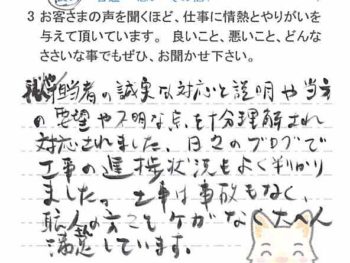 3 お客さまの声を聞くほど、仕事に情熱とやりがいを
与えて頂いています。 良いこと、悪いこと、どんな
ささいな事でもぜひ、お聞かせ下さい。
担当者の誠実な対応と説明や当方
の要望や不明な点を十分理解され
対応されました、日々のブログで
工事の進捗状況もよく判かり
ました。工事は事故もなく、
職人の方こともケガがなく大へん
満足しています。